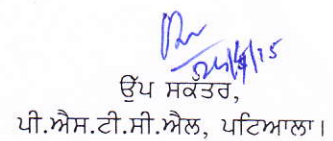 24/4/15
ਉੱਪ ਸਕੱਤਰ,
ਪੀ.ਐਸ.ਟੀ.ਸੀ.ਐਲ, ਪਟਿਆਲਾ।